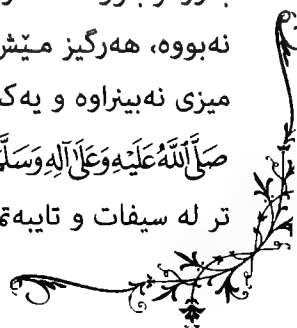 نەبووە، هەرگیز مـێش
میزی نەبینراوە و یەک
صَلَّى اللَّهُ عَلَيْهِ وَعَلَىٰ آلِهِ وَسَلَّمَ
تر لە سیفات و تایبەتم